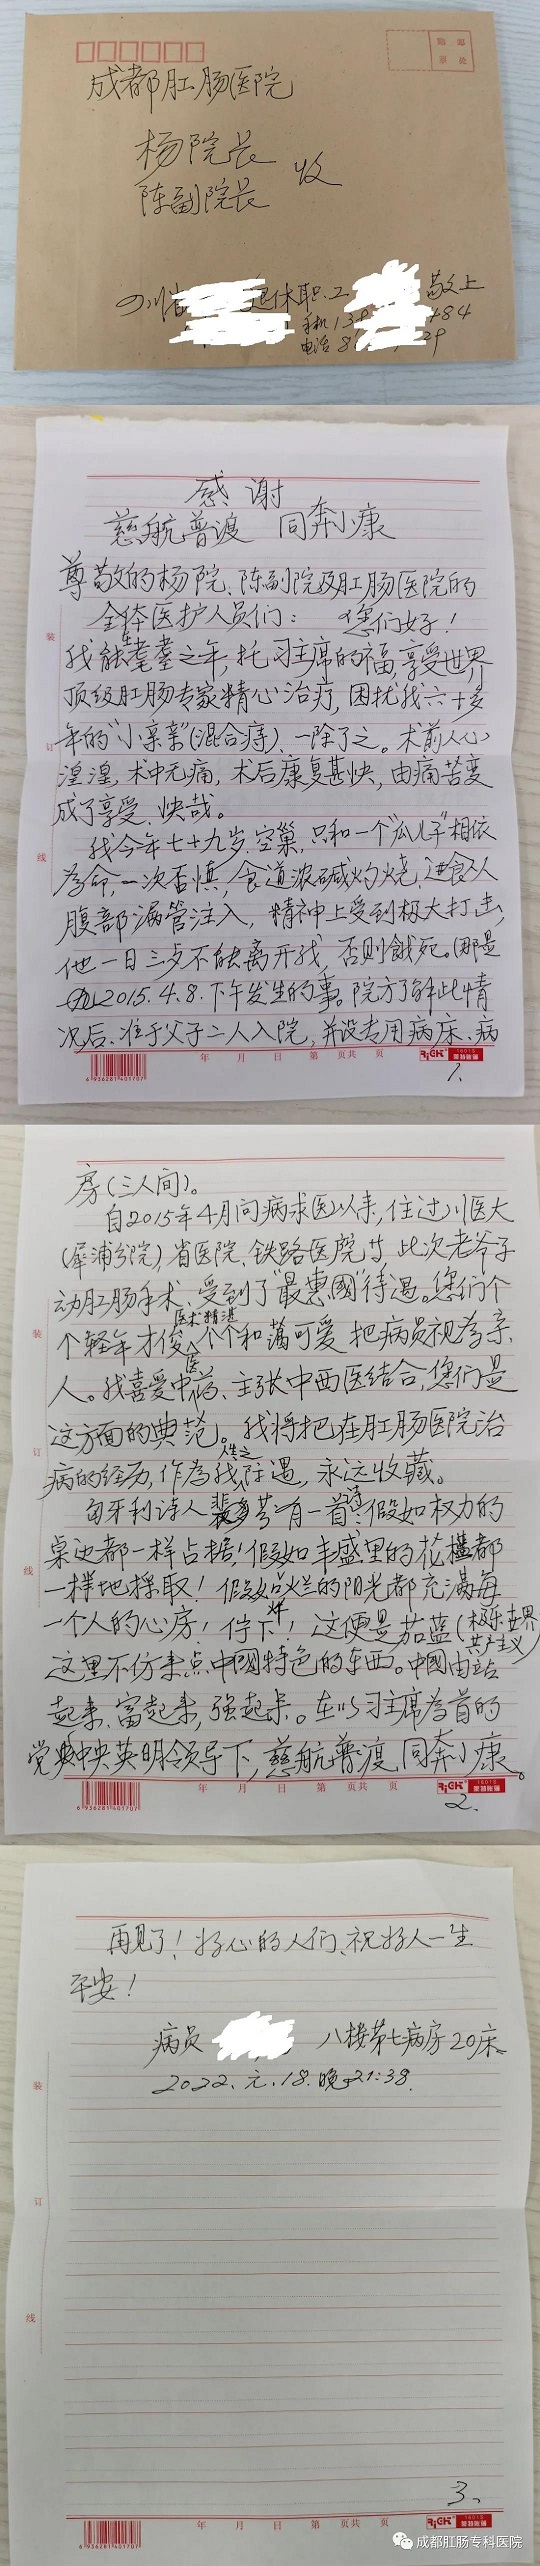 贴 邮
票 处
成都肛肠医院
杨院长
陈副院长 收
四川省 退休职工 敬上
手机13 484
电话8 29
感 谢
慈航普渡 同奔小康
尊敬的杨院、陈副院及肛肠医院的
全体医护人员们： 您们好！
我能在耄耋之年，托习主席的福，享受世界
顶级肛肠专家精心治疗，困扰我六十多
年的“小亲亲”(混合痔)、一除了之。术前人心
湟湟，术中无痛，术后康复甚快，由痛苦变
成了享受、快哉。
我今年七十九岁、空巢，只和一个“瓜儿子”相依
为命，一次否慎，食道浓碱灼烧，进食从
腹部漏管注入，精神上受到极大打击，
他一日三歺不能离开我，否则餓死。(那是
2015.4.8.下午发生的事。院方了解此情
况后、准于父子二人入院，并设专用病床、病
装
订
线
年 月 日 第 页共 页
6 936281 401707
RiCH 1601S
莱特账簿
1、
房(三人间)。
自2015年4月问病求医以来，住过川医大
(犀浦分院)，省医院、铁路医院等 此次老爷子
动肛肠手术、受到了“最惠國”待遇。您们个
个轻年才俊、医术精湛个个和蔼可爱 把病员视为亲
人。我喜爱中医药、主张中西医结合，您们是
这方面的典范。我将把在肛肠医院治
病的经历，作为我人生之际遇，永远收藏。
匈牙利诗人裴多芬有一首诗：假如权力的
桌边都一样占据！假如丰盛里的花槛都
一样地採取！假如灿烂的阳光都充满每
一个人的心房！停下来！这便是茄蓝(极乐世界
共产主义)
这里不仿来点中國特色的东西。中國由站
起来、富起来，强起来。在以习主席为首的
党中央英明领导下，慈航普渡 同奔小康。
装
订
线
年 月 日 第 页共 页
6 936281 401707
RiCH 1601S
莱特账簿
2、
再见了！好心的人们、祝好人一生
平安！
病员 八楼第七病房20床
2022.元.18.晚21:38.
装
订
线
3、
年 月 日 第 页共 页
RiCH 1601S
莱特账簿
6 936281 401707
成都肛肠专科医院